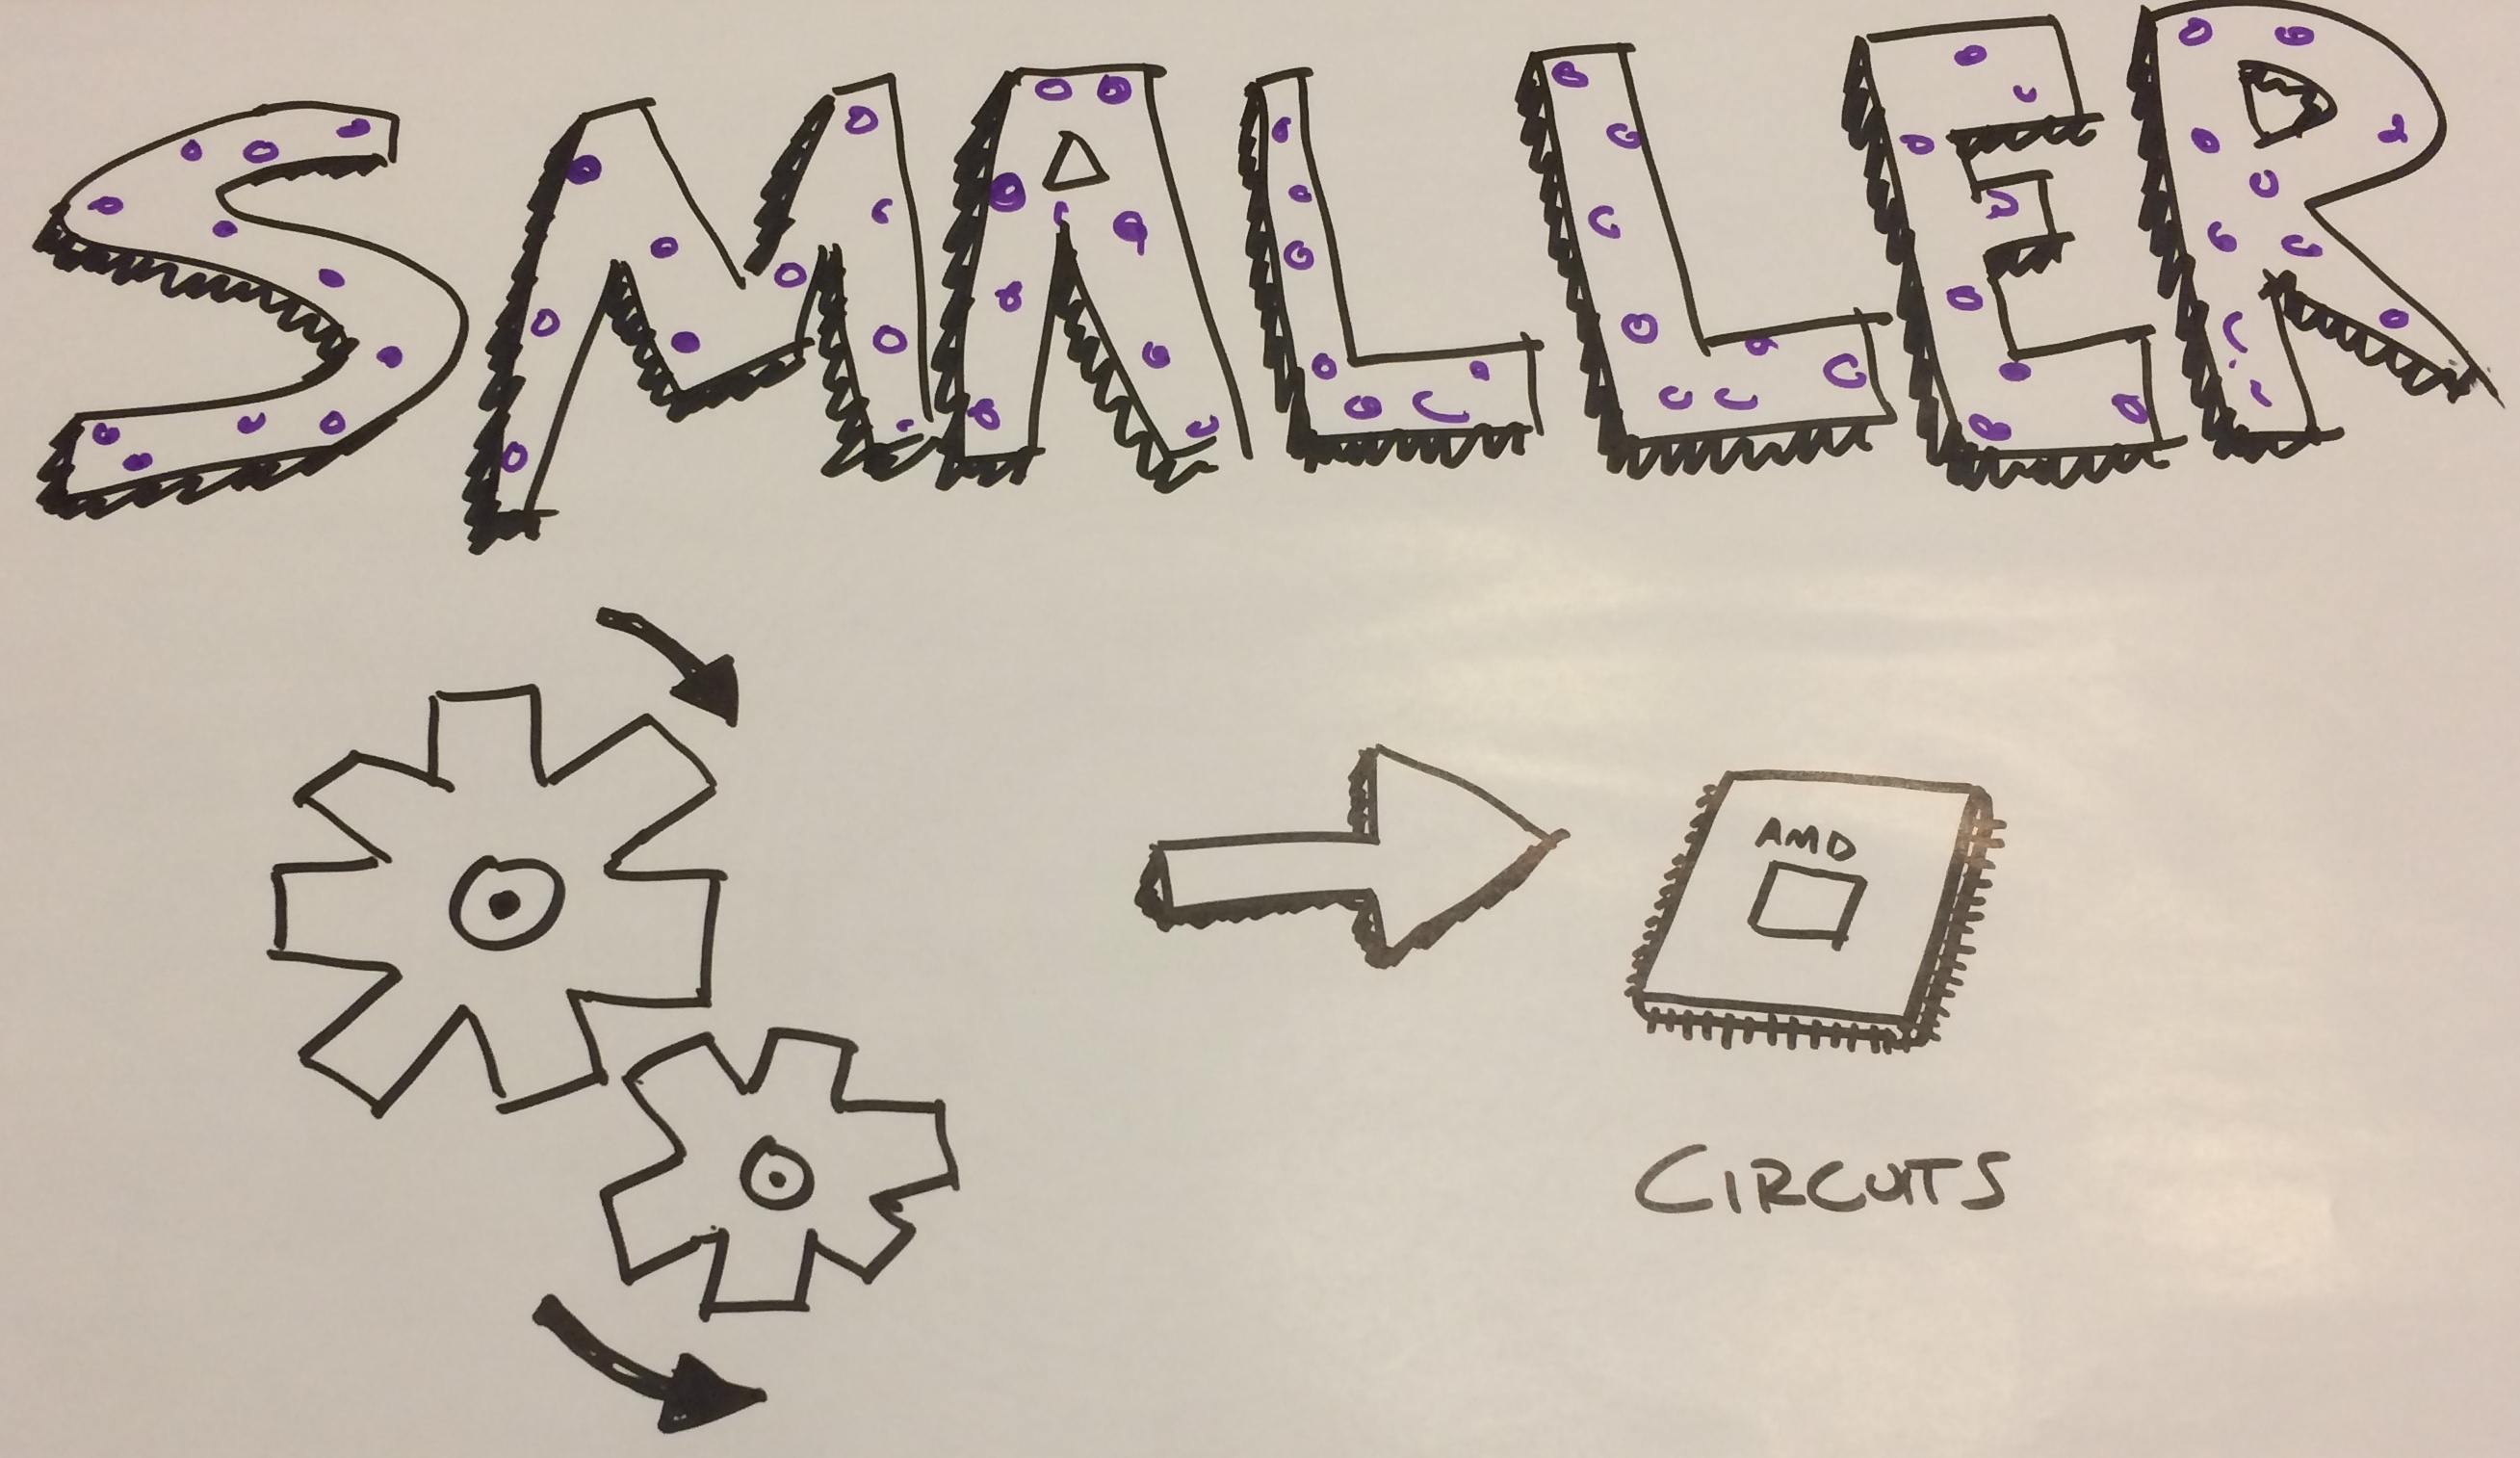 SMALLER
AMD
CIRCUITS